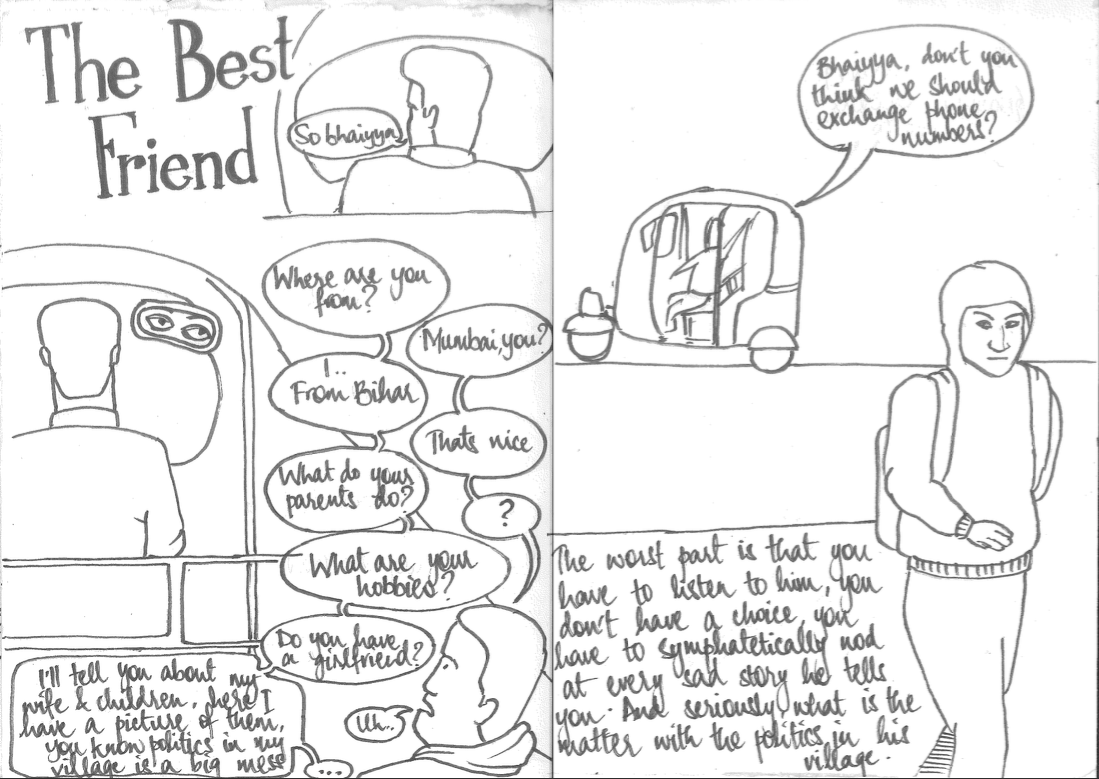 The Best
Friend
So bhaiyya
Where are you
from?
Mumbai, you?
I..
From Bihar
Thats nice
What do your
parents do?
?
What are your
hobbies?
Do you have
a girlfriend?
Uh..
I'll tell you about my
wife & children, here I
have a picture of them,
you know politics in my
village is a big mess
...
Bhaiyya, don't you
think we should
exchange phone
numbers?
The worst part is that you
have to listen to him, you
don't have a choice, you
have to symphatetically nod
at every sad story he tells
you. And seriously, what is the
matter with the politics in his
village.